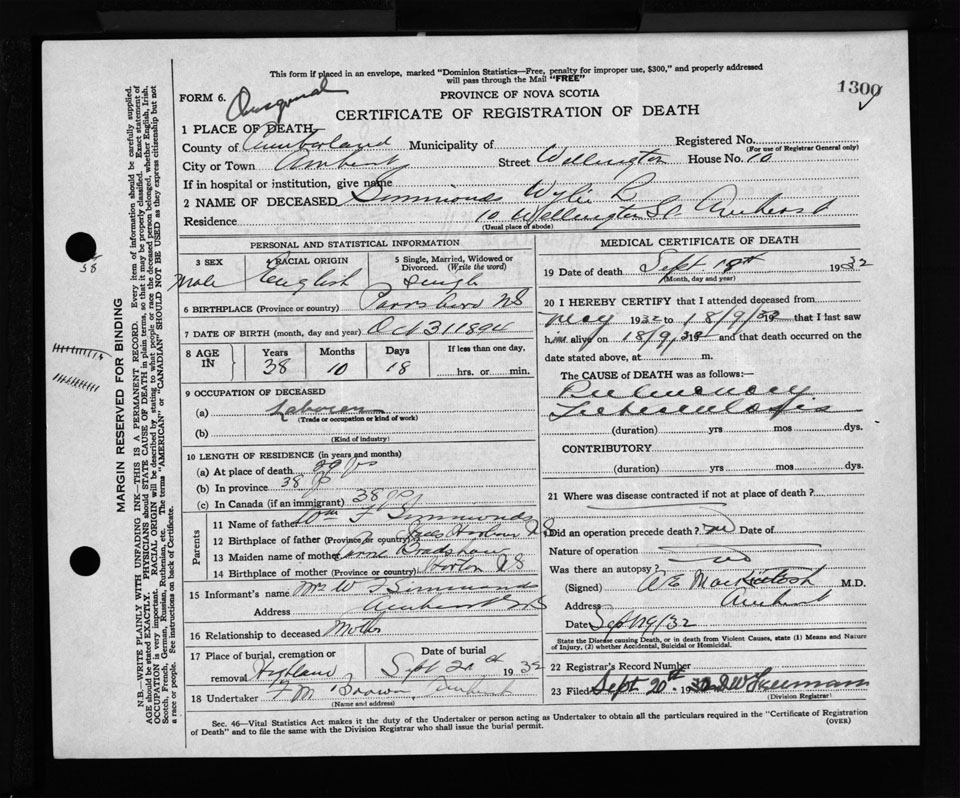 This form if placed in an envelope, marked "Dominion Statistics—Free, penalty for improper use, $300," and properly addressed
will pass through the Mail "FREE"
1300
FORM 6.
PROVINCE OF NOVA SCOTIA
CERTIFICATE OF REGISTRATION OF DEATH
1 PLACE OF DEATH
Registered No.
(For use of Registrar General only)
County of Cumberland Municipality of
City or Town Amherst Street Wellington House No. 10
If in hospital or institution, give name
2 NAME OF DECEASED Simmonds Wylie B
Residence 10 Wellington St. Amherst
(Usual place of abode)
PERSONAL AND STATISTICAL INFORMATION
3 SEX Male
4 RACIAL ORIGIN English
5 Single, Married, Widowed or Divorced. (Write the word) Single
6 BIRTHPLACE (Province or country) Parrsboro NS
7 DATE OF BIRTH (month, day and year) Oct 31 1894
8 AGE IN Years 38 Months 10 Days 18 If less than one day, hrs. or min.
9 OCCUPATION OF DECEASED
(a) Laborer
(Trade or occupation or kind of work)
(b)
(Kind of industry)
10 LENGTH OF RESIDENCE (in years and months)
(a) At place of death 29 yrs
(b) In province 38 yrs
(c) In Canada (if an immigrant) 38 yrs
Parents
11 Name of father Wm F Simmonds
12 Birthplace of father (Province or country) Harbour NS
13 Maiden name of mother Bradshaw
14 Birthplace of mother (Province or country) Horton NS
15 Informant's name Mrs W F Simmonds
Address Amherst NS
16 Relationship to deceased Mother
17 Place of burial, cremation or removal Highland
Date of burial Sept 20th 1932
18 Undertaker F M Brown Amherst
(Name and address)
MEDICAL CERTIFICATE OF DEATH
19 Date of death Sept 18th 1932
(Month, day and year)
20 I HEREBY CERTIFY that I attended deceased from
May 1932 to 18/9/32 that I last saw
him alive on 18/9/32 and that death occurred on the
date stated above, at m.
The CAUSE of DEATH was as follows:—
Pulmonary
Tuberculosis
(duration) yrs mos dys.
CONTRIBUTORY
(duration) yrs mos dys.
21 Where was disease contracted if not at place of death?
Did an operation precede death? no Date of
Nature of operation
Was there an autopsy? no
(Signed) A E MacKintosh M.D.
Address Amherst
Date Sept 19/32
State the Disease causing Death, or in death from Violent Causes, state (1) Means and Nature
of Injury, (2) whether Accidental, Suicidal or Homicidal.
22 Registrar's Record Number
23 Filed Sept 20th 1932
(Division Registrar)
Sec. 46—Vital Statistics Act makes it the duty of the Undertaker or person acting as Undertaker to obtain all the particulars required in the "Certificate of Registration
of Death" and to file the same with the Division Registrar who shall issue the burial permit.
(OVER)
MARGIN RESERVED FOR BINDING
N.B.—WRITE PLAINLY WITH UNFADING INK—THIS IS A PERMANENT RECORD. Every item of information should be carefully supplied.
AGE should be stated EXACTLY. PHYSICIANS should STATE CAUSE OF DEATH in plain terms, so that it may be properly classified. Exact statement of
OCCUPATION is very important. RACIAL ORIGIN will be described by stating to what people or race the deceased person belonged, whether English, Irish,
Scotch, French, German, Russian, Ruthenian, etc. The terms "AMERICAN" or "CANADIAN" SHOULD NOT BE USED as they express citizenship but not
a race or people. See instructions on back of Certificate.